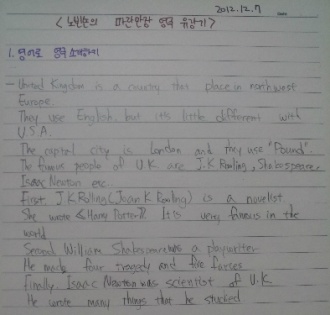 2012.12.7
< 노빈손의 파란만장 영국 유람기 >
1. 영어로 영국 소개하기
- United Kingdom is a country that place in northwest
Europe.
They use English. but it's little different with
U.S.A.
The capital city is London and they use "Pound".
The famous people of U.K are J.K Rowling, Shakespeare,
Isaac Newton etc.
First, J.K Rolling (Joan K Rowling) is a novelist.
She wrote <Harry Potter>. It is very famous in the
world
Second William Shakespeare was a playwriter
He made four tragedy and five farses
Finally, Isaac Newton was scientist of U.K
He wrote many things that he studied